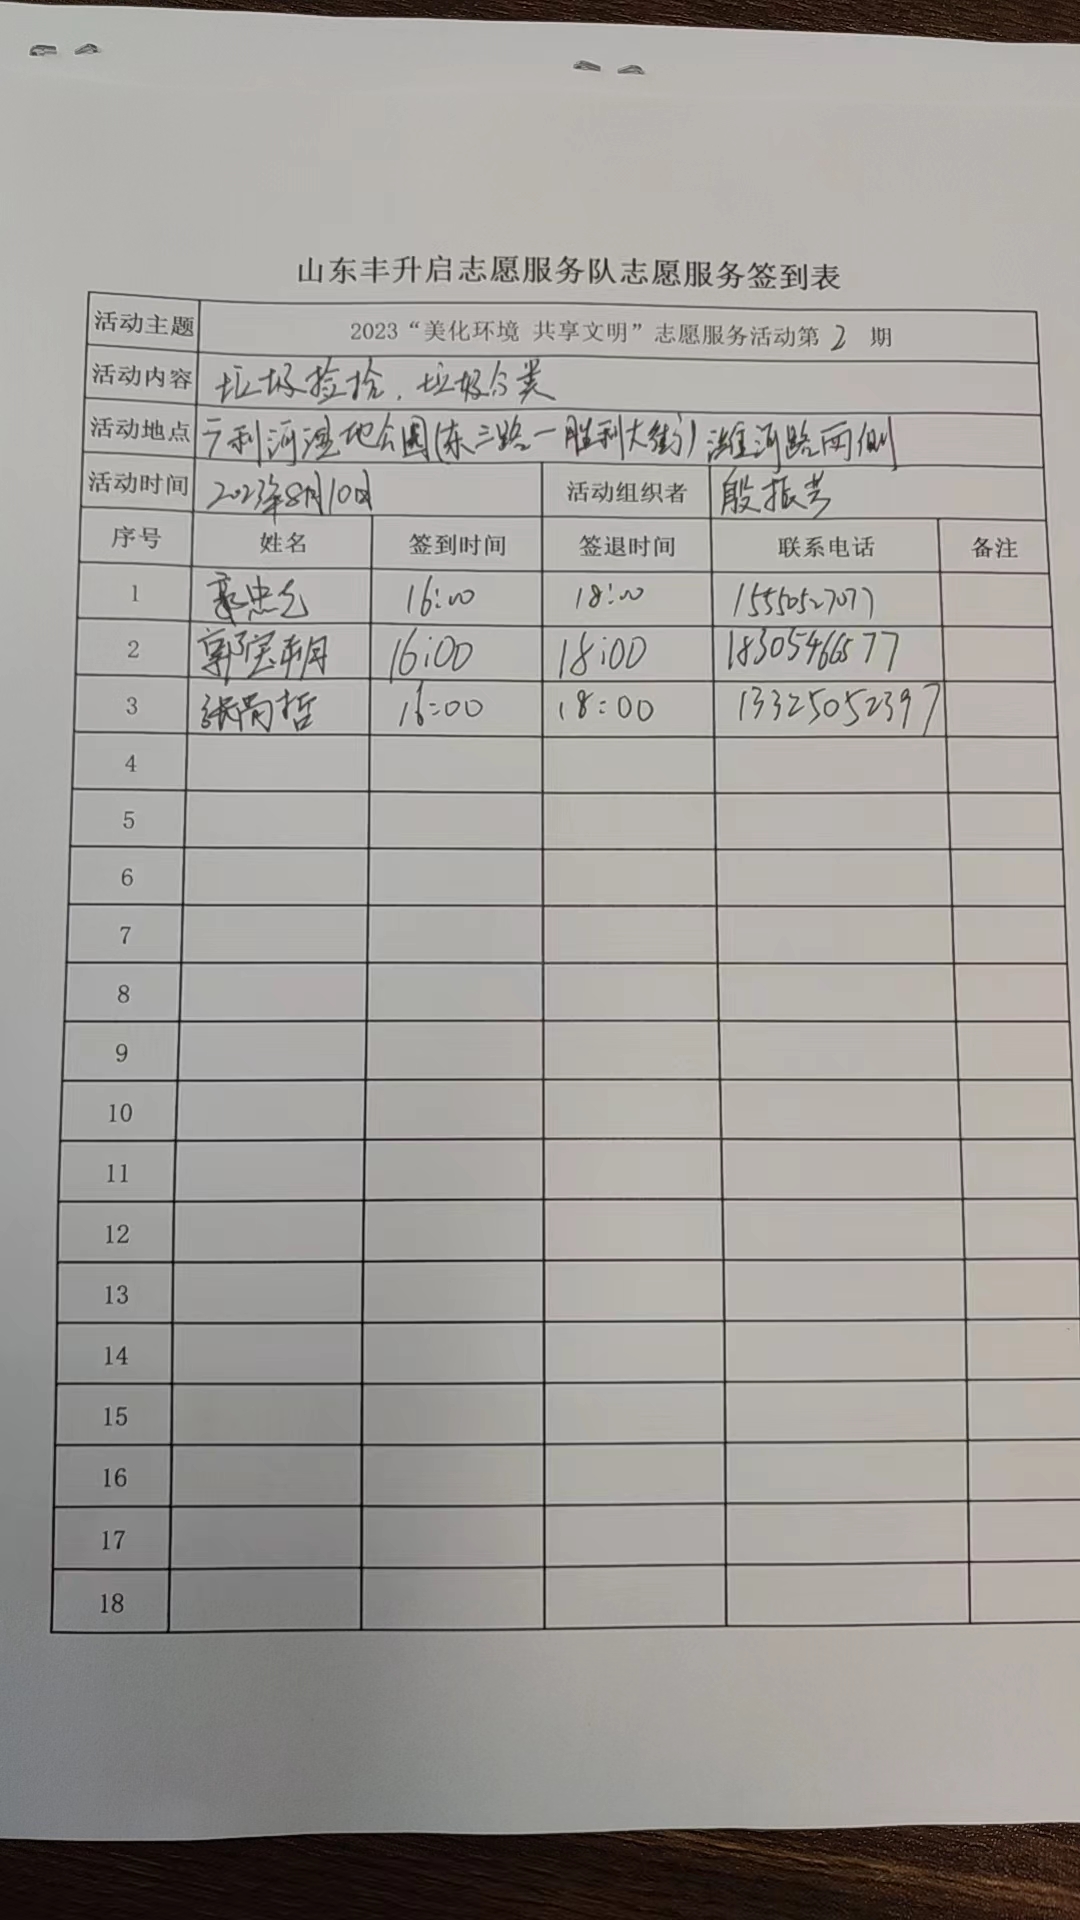 山东丰升启志愿服务队志愿服务签到表
活动主题 2023“美化环境 共享文明”志愿服务活动第 2 期
活动内容 垃圾捡拾、垃圾分类
活动地点 广利河湿地公园(东三路一胜利大街)潍河路两侧
活动时间 2023年8月10日 活动组织者 殷振芳
序号 姓名 签到时间 签退时间 联系电话 备注
1 16:00 18:00 15550527077
2 郭宝朝 16:00 18:00 18305466577
3 张尚哲 16:00 18:00 13325052397
4
5
6
7
8
9
10
11
12
13
14
15
16
17
18